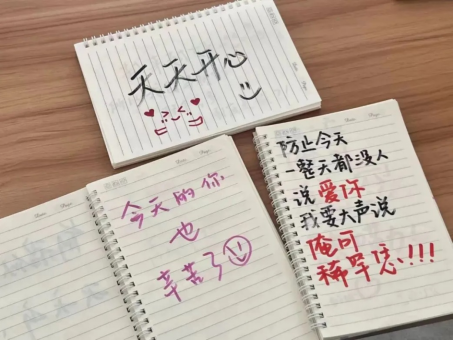 天天开心
今天的你
也
辛苦了
防止今天
一整天都没人
说爱你
我要大声说
俺可
稀罕恁!!!